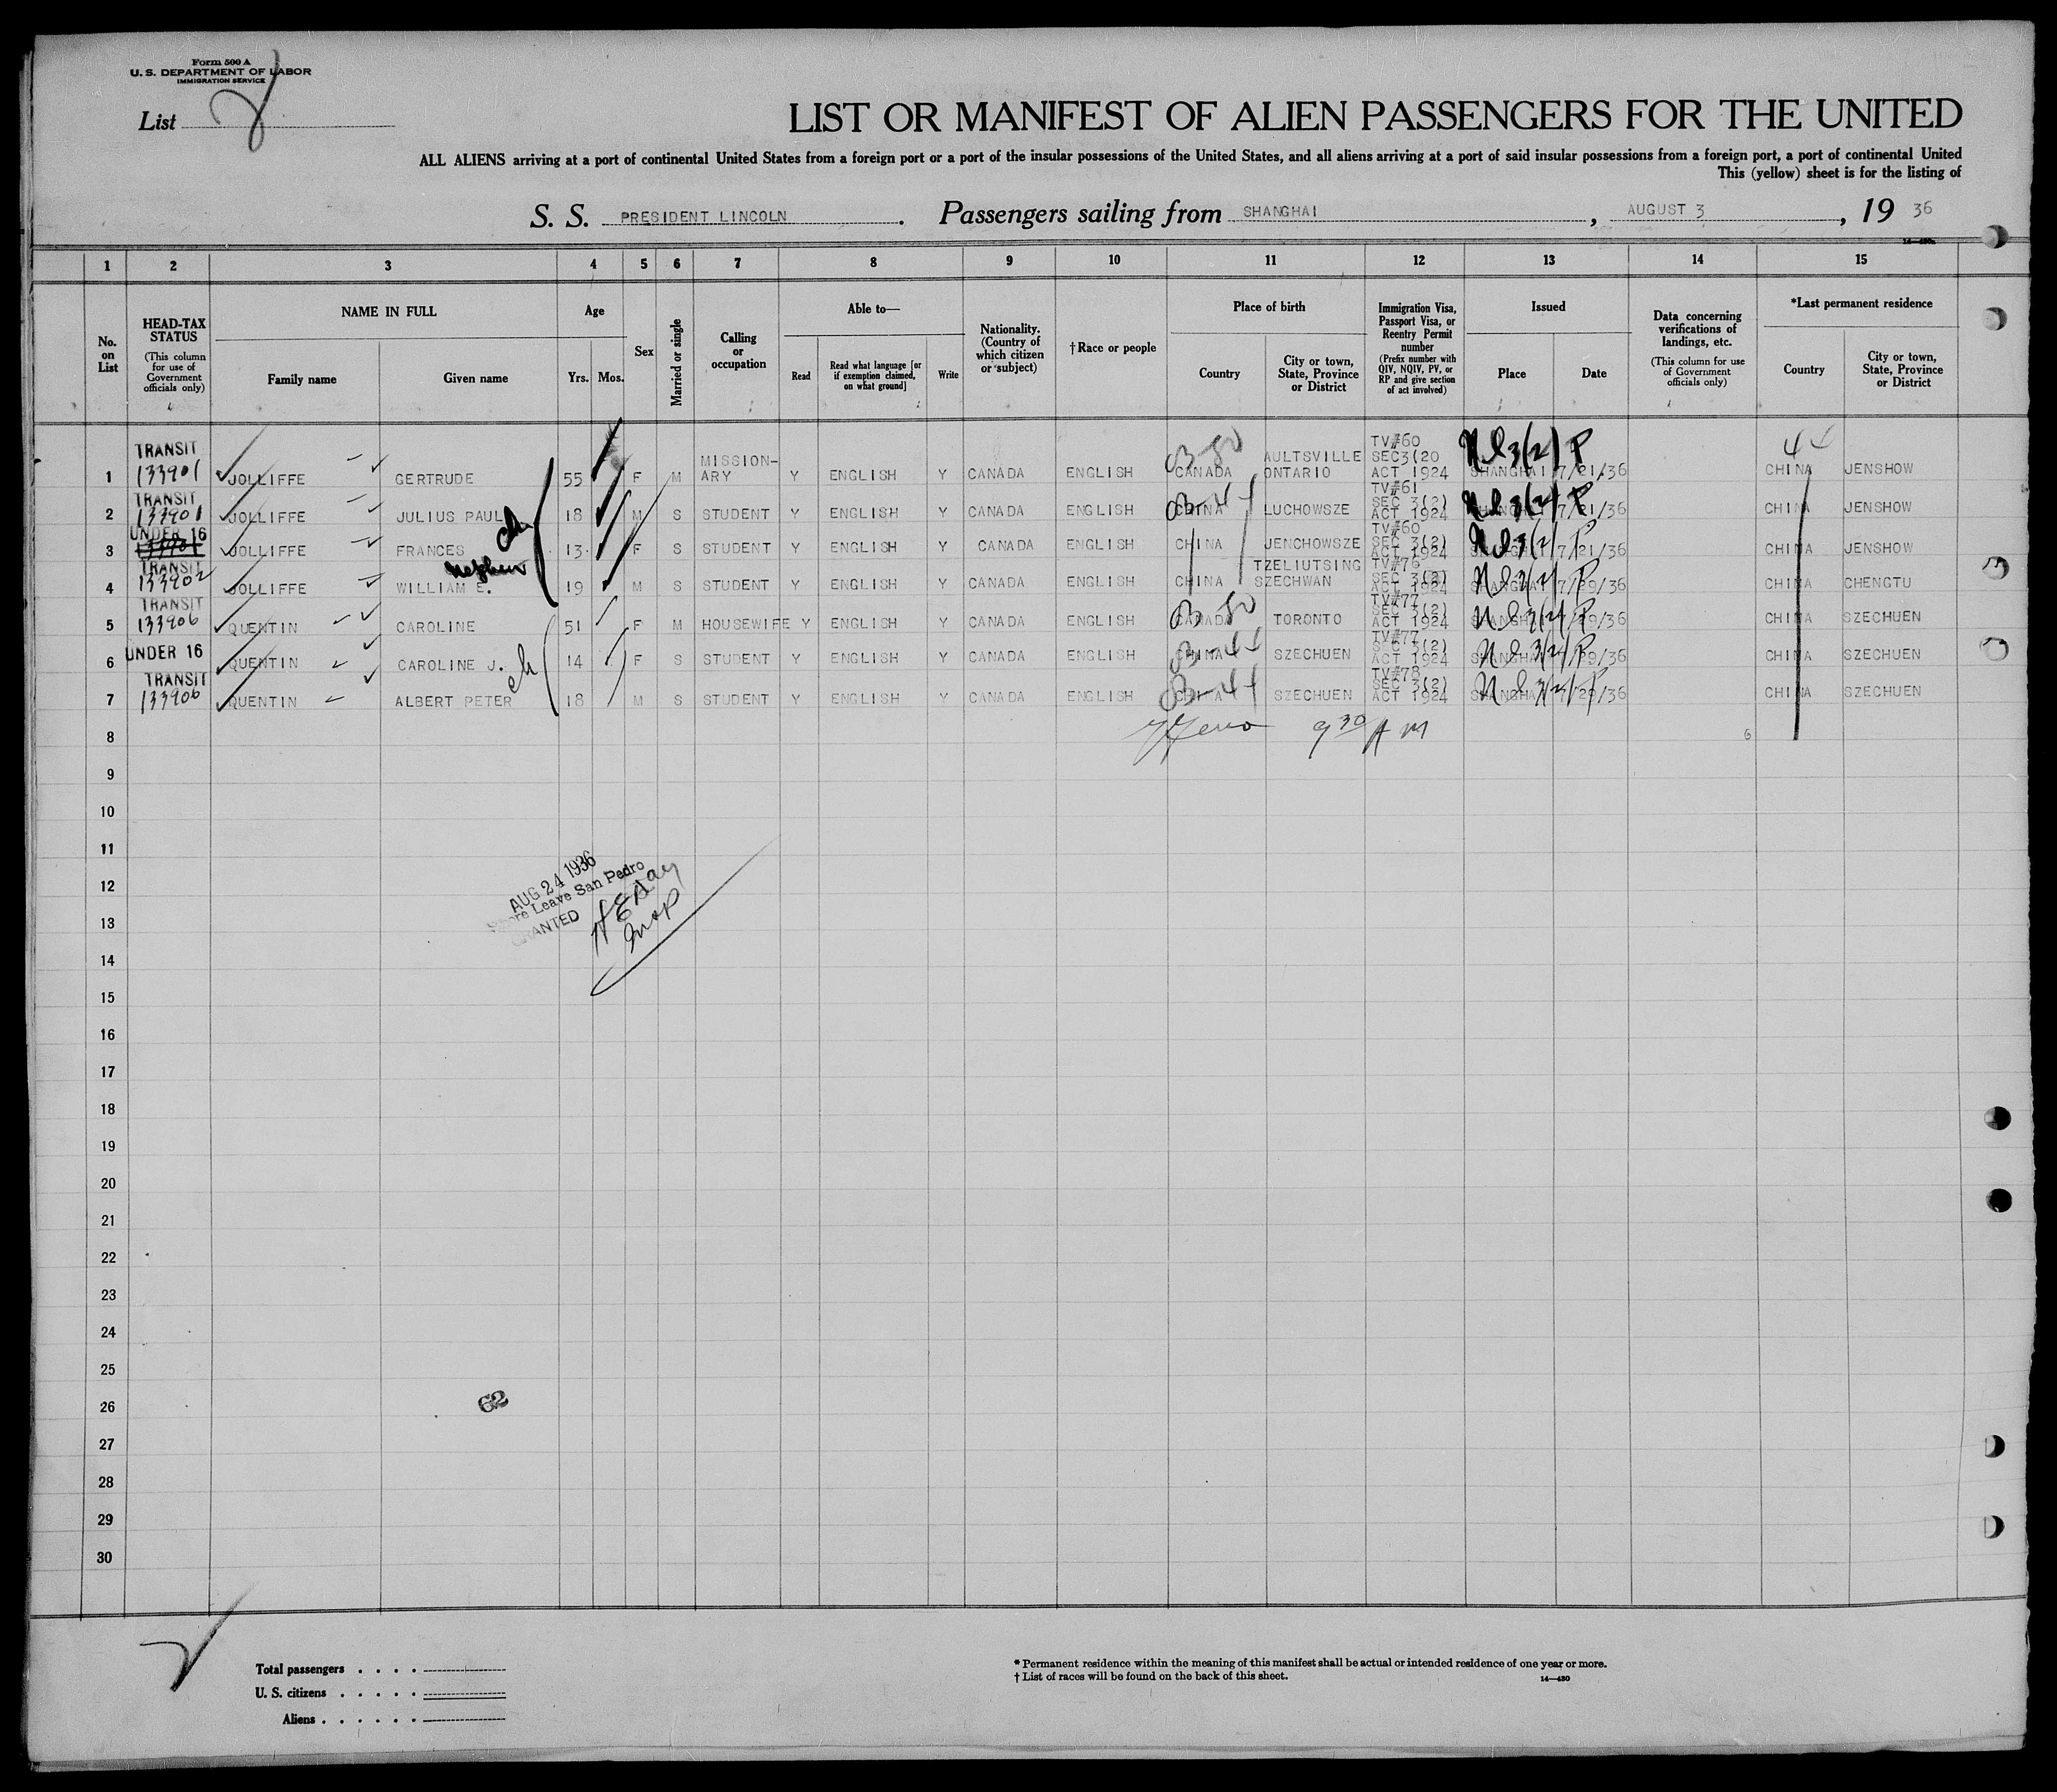 Form 500 A
U. S. DEPARTMENT OF LABOR
IMMIGRATION SERVICE
List
LIST OR MANIFEST OF ALIEN PASSENGERS FOR THE UNITED
ALL ALIENS arriving at a port of continental United States from a foreign port or a port of the insular possessions of the United States, and all aliens arriving at a port of said insular possessions from a foreign port, a port of continental United
This (yellow) sheet is for the listing of
S. S. PRESIDENT LINCOLN. Passengers sailing from SHANGHAI, AUGUST 3, 19 36
1 2 3 4 5 6 7 8 9 10 11 12 13 14 15
No. on List
HEAD-TAX STATUS (This column for use of Government officials only)
NAME IN FULL
Family name Given name
Age
Yrs. Mos.
Sex
Married or single
Calling or occupation
Able to—
Read
Read what language [or if exemption claimed, on what ground]
Write
Nationality. (Country of which citizen or subject)
†Race or people
Place of birth
Country
City or town, State, Province or District
Immigration Visa, Passport Visa, or Reentry Permit number (Prefix number with QIV, NQIV, PV, or RP and give section of act involved)
Issued
Place Date
Data concerning verifications of landings, etc. (This column for use of Government officials only)
*Last permanent residence
Country
City or town, State, Province or District
1 TRANSIT 133901 JOLLIFFE GERTRUDE 55 F M MISSION-ARY Y ENGLISH Y CANADA ENGLISH 03-80 CANADA AULTSVILLE ONTARIO TV#60 SEC3(20 ACT 1924 SHANGHAI 7/21/36 44 CHINA JENSHOW
2 TRANSIT 133901 JOLLIFFE JULIUS PAUL ch 18 M S STUDENT Y ENGLISH Y CANADA ENGLISH 03-44 CHINA LUCHOWSZE TV#61 SEC 3(2) ACT 1924 SHANGHAI 7/21/36 CHINA JENSHOW
3 UNDER 16 JOLLIFFE FRANCES 13 F S STUDENT Y ENGLISH Y CANADA ENGLISH CHINA JENCHOWSZE TV#60 SEC 3(2) ACT 1924 SHANGHAI 7/21/36 CHINA JENSHOW
4 TRANSIT 133902 JOLLIFFE nephew WILLIAM E. 19 M S STUDENT Y ENGLISH Y CANADA ENGLISH CHINA TZELIUTSING SZECHWAN TV#76 SEC 3(2) ACT 1924 SHANGHAI 7/29/36 CHINA CHENGTU
5 TRANSIT 133906 QUENTIN CAROLINE 51 F M HOUSEWIFE Y ENGLISH Y CANADA ENGLISH 03-80 CANADA TORONTO TV#77 SEC 3(2) ACT 1924 SHANGHAI 7/29/36 CHINA SZECHUEN
6 UNDER 16 QUENTIN CAROLINE J. ch 14 F S STUDENT Y ENGLISH Y CANADA ENGLISH 03-44 CHINA SZECHUEN TV#77 SEC 3(2) ACT 1924 SHANGHAI 7/29/36 CHINA SZECHUEN
7 TRANSIT 133906 QUENTIN ALBERT PETER 18 M S STUDENT Y ENGLISH Y CANADA ENGLISH 03-44 CHINA SZECHUEN TV#78 SEC 3(2) ACT 1924 SHANGHAI 7/29/36 CHINA SZECHUEN
8 9 30 AM 6
9
10
11
12
13
14
15
16
17
18
19
20
21
22
23
24
25
26
27
28
29
30
AUG 24 1936
Shore Leave San Pedro
GRANTED
Insp
62
Total passengers . . . .
U. S. citizens . . . . .
Aliens . . . . . .
* Permanent residence within the meaning of this manifest shall be actual or intended residence of one year or more.
† List of races will be found on the back of this sheet.
14—430